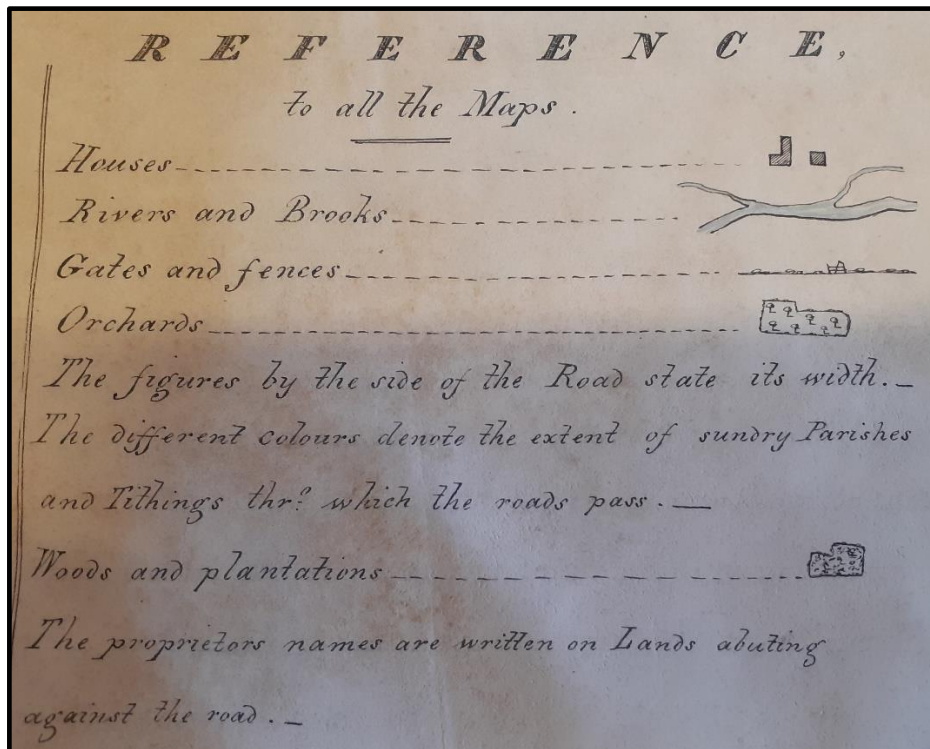 REFERENCE,
to all the Maps.
Houses
Rivers and Brooks
Gates and fences
Orchards
The figures by the side of the Road state its width.
The different colours denote the extent of sundry Parishes
and Tithings thro which the roads pass.
Woods and plantations
The proprietors names are written on Lands abuting
against the road.